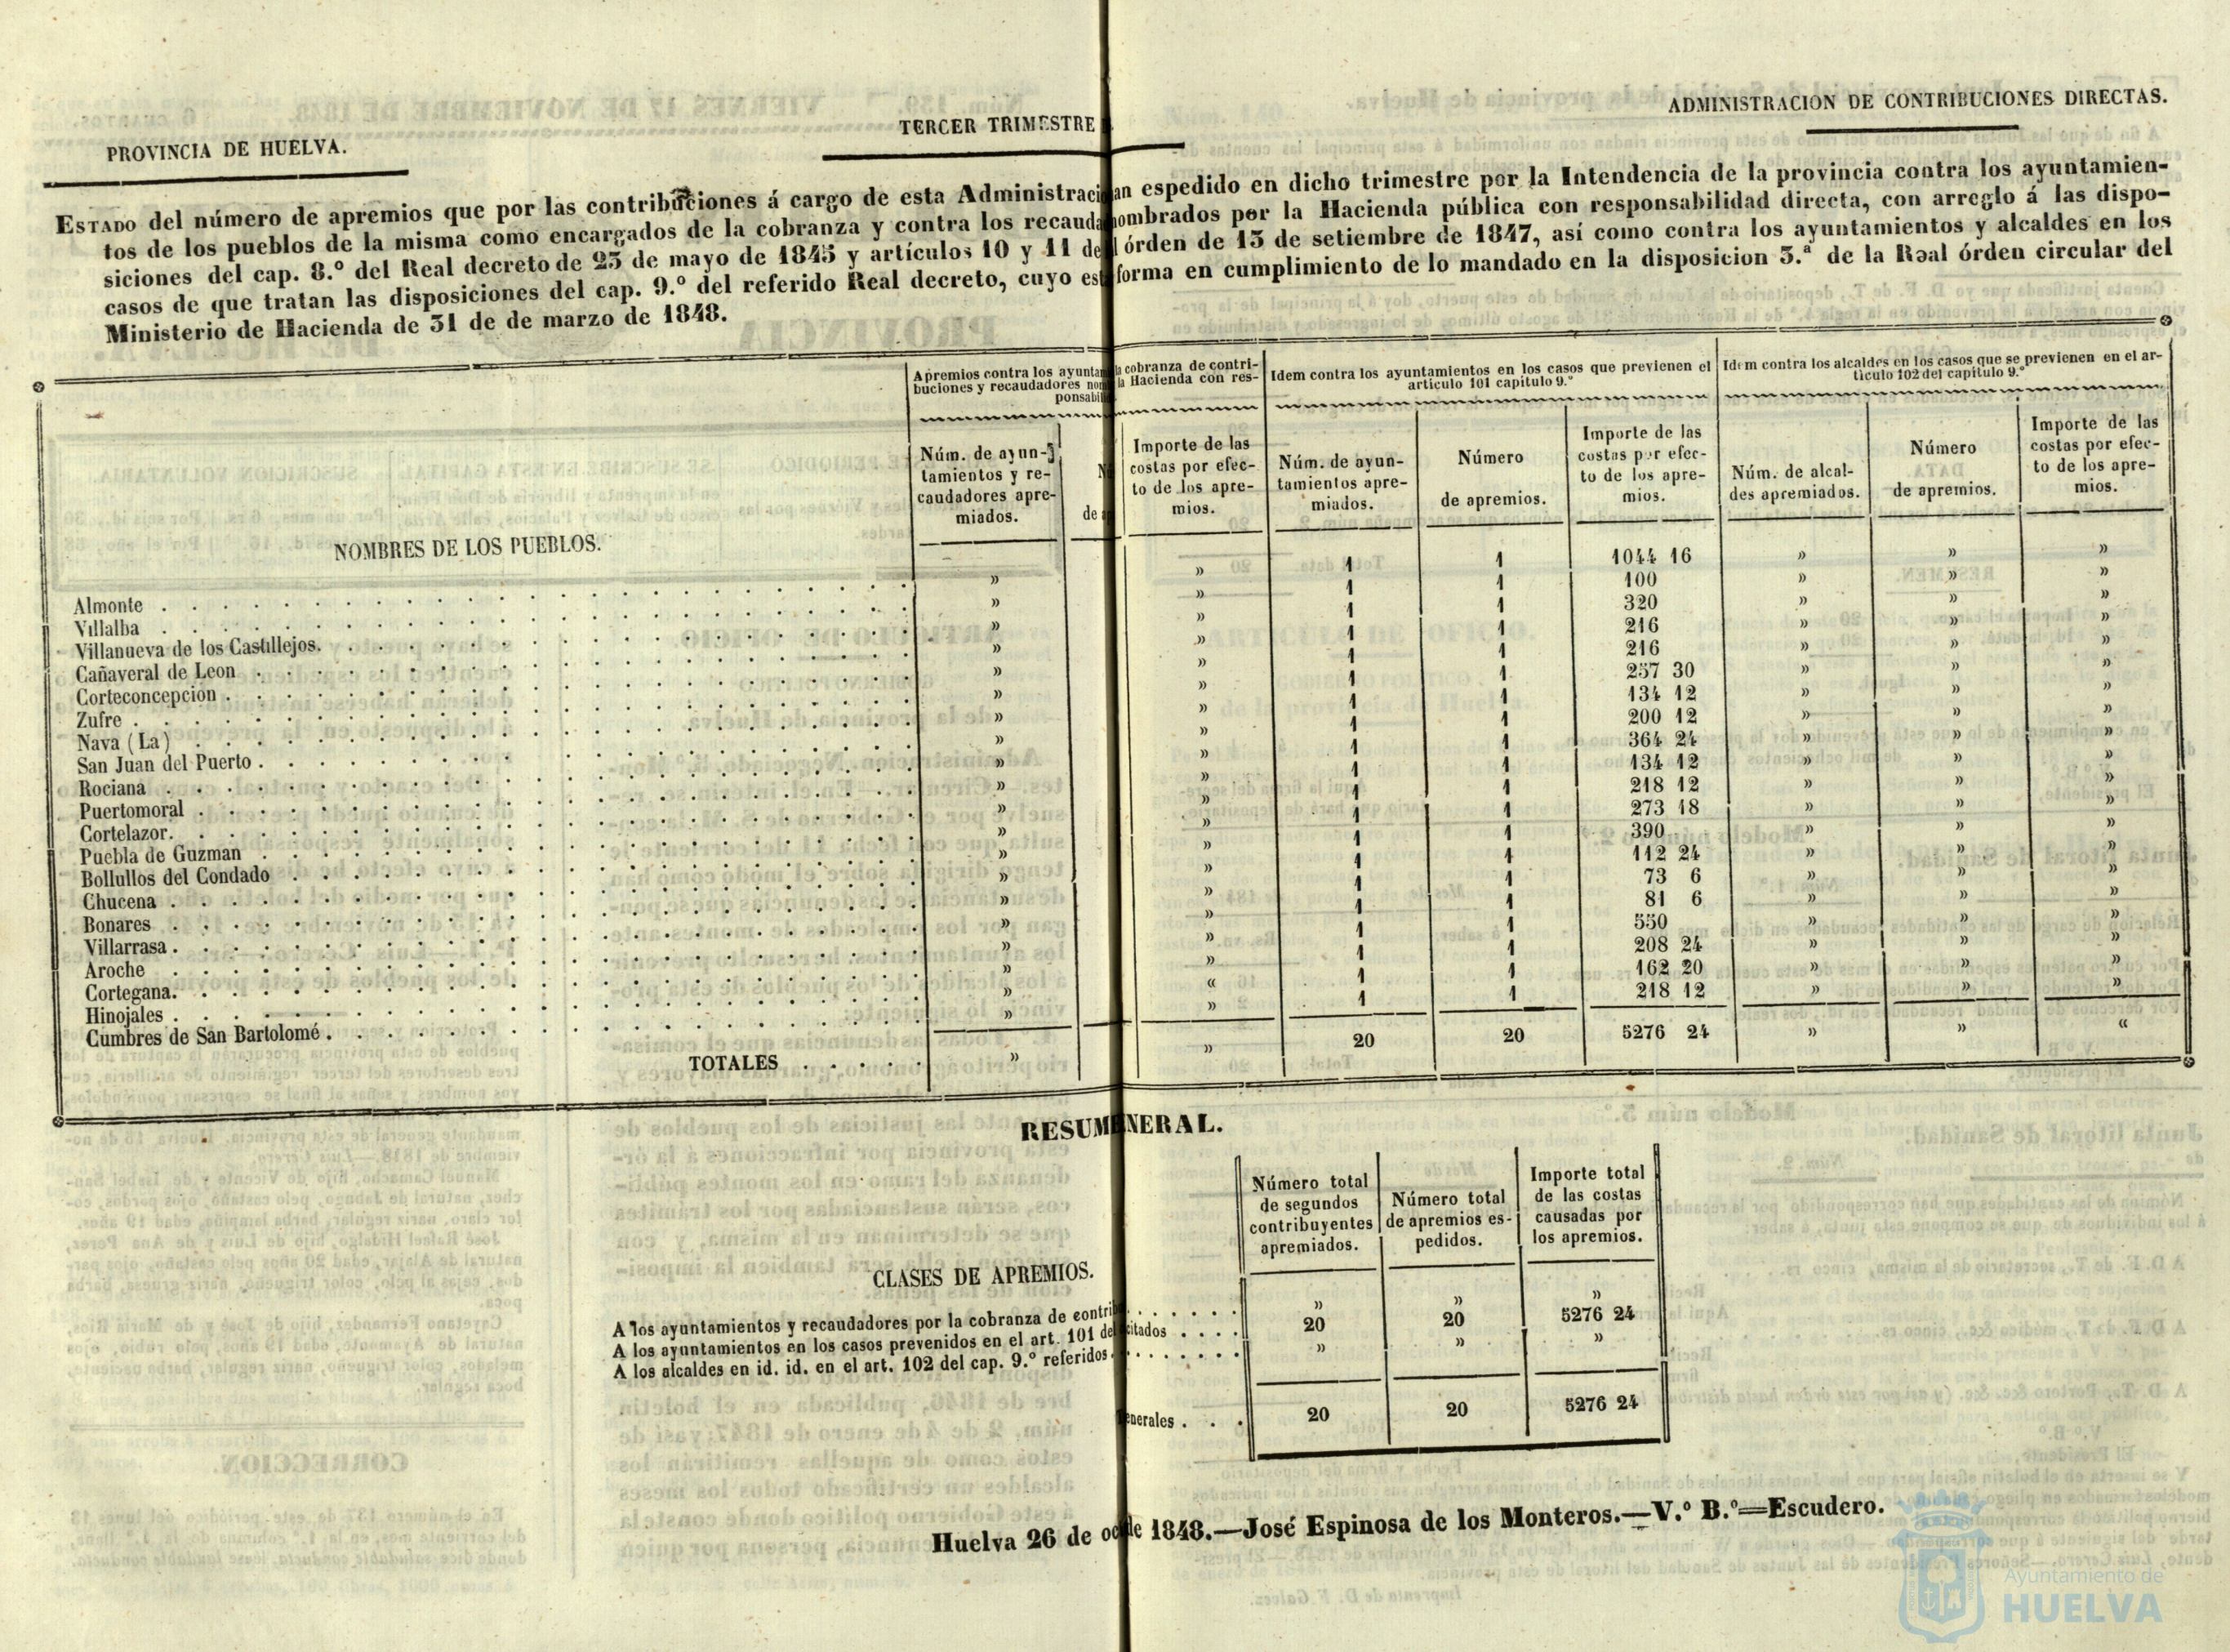 PROVINCIA DE HUELVA.
TERCER TRIMESTRE
ADMINISTRACION DE CONTRIBUCIONES DIRECTAS.
ESTADO del número de apremios que por las contribuciones á cargo de esta Administraci an espedido en dicho trimestre por la Intendencia de la provincia contra los ayuntamien-
tos de los pueblos de la misma como encargados de la cobranza y contra los recauda nombrados por la Hacienda pública con responsabilidad directa, con arreglo á las dispo-
siciones del cap. 8.º del Real decreto de 23 de mayo de 1845 y artículos 10 y 11 de l órden de 13 de setiembre de 1847, así como contra los ayuntamientos y alcaldes en los
casos de que tratan las disposiciones del cap. 9.º del referido Real decreto, cuyo est forma en cumplimiento de lo mandado en la disposicion 5.ª de la Real órden circular del
Ministerio de Hacienda de 31 de de marzo de 1848.
Apremios contra los ayuntam la cobranza de contri-
buciones y recaudadores nom la Hacienda con res-
ponsabili
Idem contra los ayuntamientos en los casos que previenen el
articulo 101 capitulo 9.º
Idem contra los alcaldes en los casos que se previenen en el ar-
ticulo 102 del capitulo 9.º
NOMBRES DE LOS PUEBLOS.
Núm. de ayun-
tamientos y re-
caudadores apre-
miados.
N
de a
Importe de las
costas por efec-
to de los apre-
mios.
Núm. de ayun-
tamientos apre-
miados.
Número
de apremios.
Importe de las
costas por efec-
to de los apre-
mios.
Núm. de alcal-
des apremiados.
Número
de apremios.
Importe de las
costas por efec-
to de los apre-
mios.
Almonte . . . . » » 1 1 1044 16 » » »
Villalba . . . . » » 1 1 100 » » »
Villanueva de los Castillejos. . . . . » » 1 1 320 » » »
Cañaveral de Leon . . . . » » 1 1 216 » » »
Corteconcepcion . . . . » » 1 1 216 » » »
Zufre . . . . » » 1 1 257 30 » » »
Nava (La) . . . . » » 1 1 134 12 » » »
San Juan del Puerto . . . . » » 1 1 200 12 » » »
Rociana . . . . » » 1 1 364 24 » » »
Puertomoral . . . . » » 1 1 134 12 » » »
Cortelazor. . . . . » » 1 1 218 12 » » »
Puebla de Guzman . . . . » » 1 1 273 18 » » »
Bollullos del Condado . . . . » » 1 1 390 » » »
Chucena . . . . » » 1 1 112 24 » » »
Bonares . . . . » » 1 1 73 6 » » »
Villarrasa . . . . » » 1 1 81 6 » » »
Aroche . . . . » » 1 1 550 » » »
Cortegana. . . . . » » 1 1 208 24 » » »
Hinojales . . . . » « 1 1 162 20 » » »
Cumbres de San Bartolomé . . . . » » 1 1 218 12 » » »
TOTALES . . . . . » » 20 20 5276 24 » » «
RESUM NERAL.
CLASES DE APREMIOS.
Número total
de segundos
contribuyentes
apremiados.
Número total
de apremios es-
pedidos.
Importe total
de las costas
causadas por
los apremios.
A los ayuntamientos y recaudadores por la cobranza de contrib . . . . . » » »
A los ayuntamientos en los casos prevenidos en el art. 101 de citados . . . . 20 20 5276 24
A los alcaldes en id. id. en el art. 102 del cap. 9.º referidos . . . . . » » »
enerales . . . 20 20 5276 24
Huelva 26 de oc de 1848.—José Espinosa de los Monteros.—V.º B.º=Escudero.
Ayuntamiento de
HUELVA